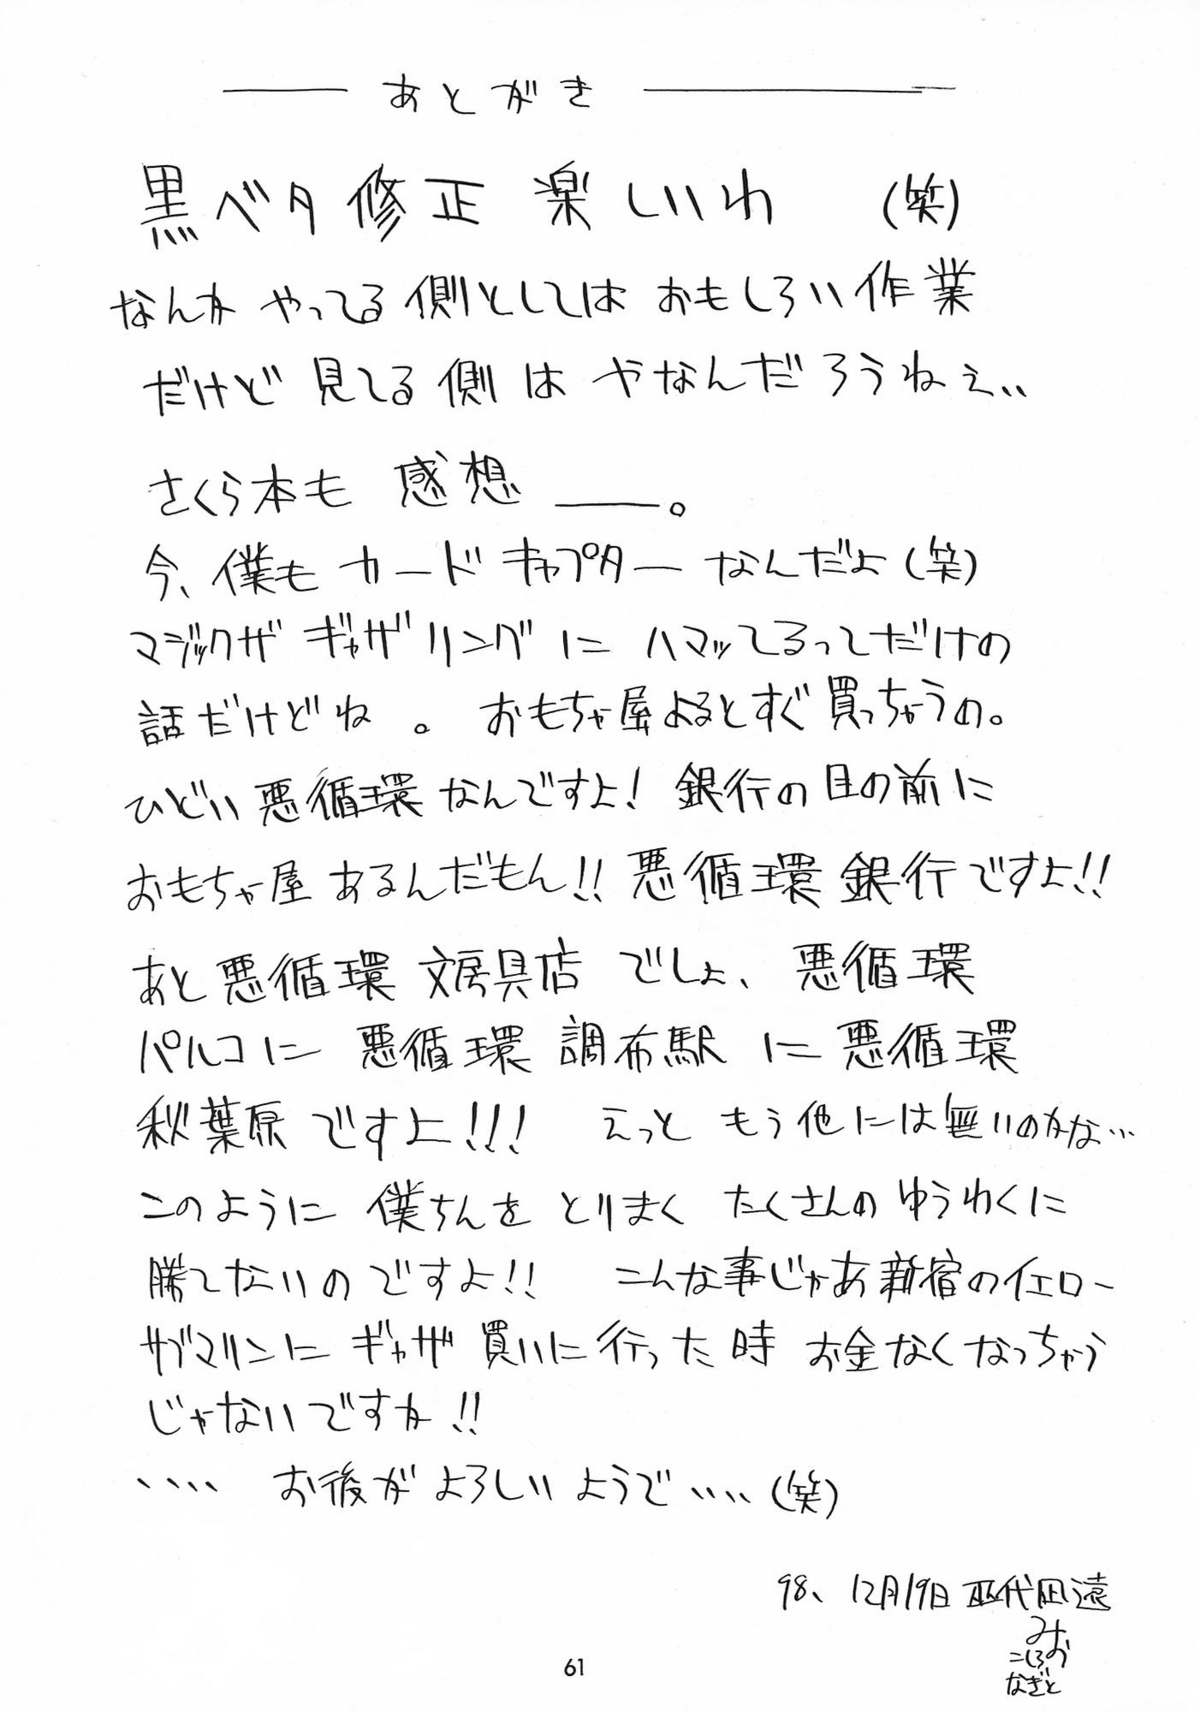 あとがき
黒ベタ修正 楽しいわ (笑)
なんか やってる側としては おもしろい作業
だけど 見てる側は やなんだろうねぇ、、
さくら本も 感想 ――。
今、僕も カードキャプター なんだよ(笑)
マジックザ ギャザリングに ハマッてるってだけの
話だけどね 。 おもちゃ屋よるとすぐ買っちゃうの。
ひどい悪循環なんですよ! 銀行の目の前に
おもちゃ屋あるんだもん!! 悪循環銀行ですよ!!
あと悪循環文房具店 でしょ、悪循環
パルコに 悪循環調布駅に悪循環
秋葉原ですよ!!! えっと もう他には無いのかな…
このように 僕ちんを とりまく たくさんの ゆうわくに
勝てないのですよ!! こんな事じゃあ新宿のイエロー
サブマリンに ギャザ 買いに行った時 お金なくなっちゃう
じゃないですか!!
、、、、 お後がよろしいようで、、、、(笑)
98、12月19日 巫代凪遠
みお
こしろ
なぎと
61